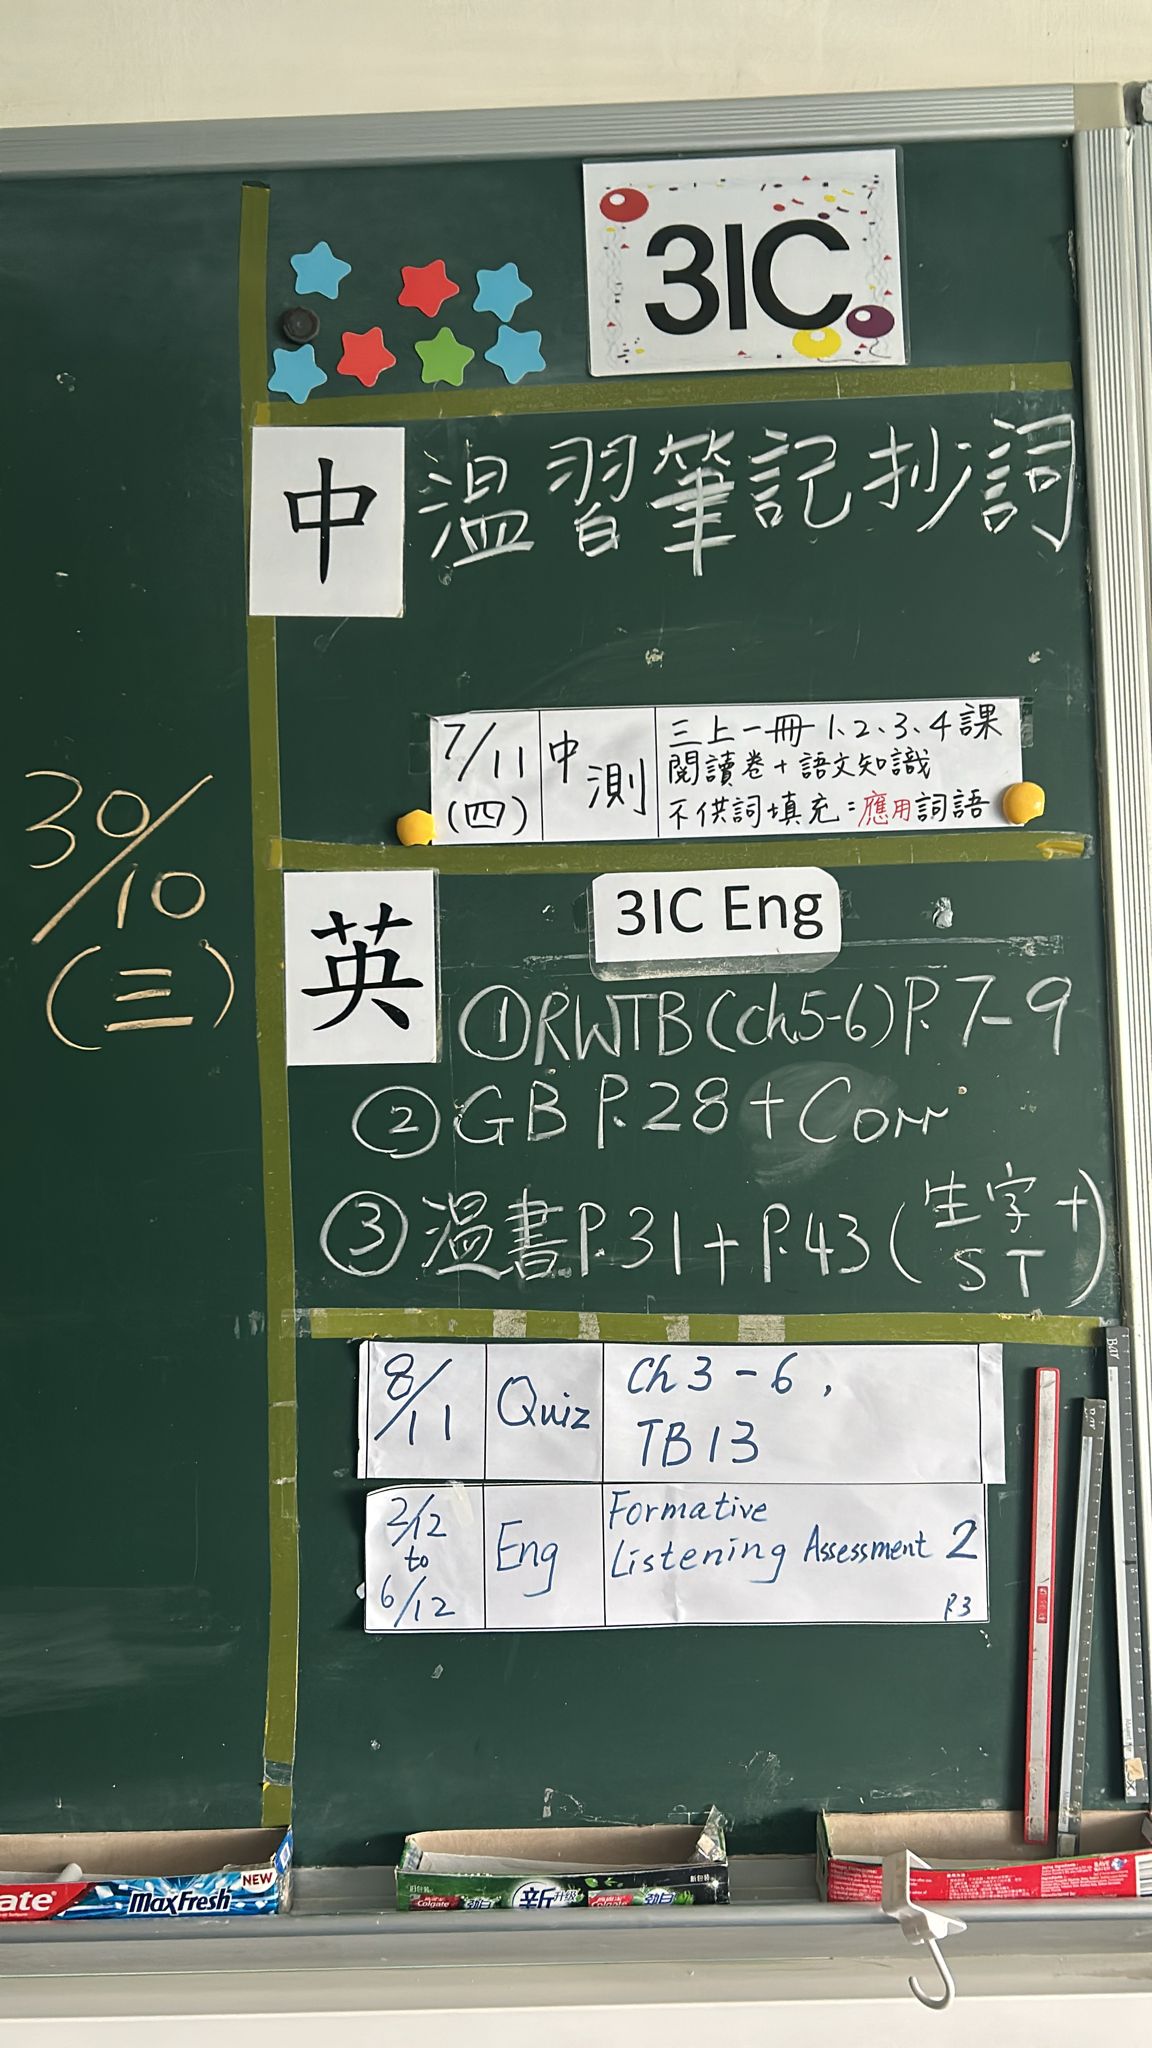 3IC
中
溫習筆記抄詞
7/11
(四)
中測
三上一冊 1、2、3、4課
閱讀卷+語文知識
不供詞填充:應用詞語
30/10
(三)
英
3IC Eng
①RWTB(Ch5-6)P.7-9
②GB P.28+Corr
③溫書P.31+P.43(生字+ST)
8/11
Quiz
Ch 3-6,
TB13
2/12
to
6/12
Eng
Formative
Listening Assessment 2
P.3
NEW
ate
MaxFresh
Colgate
勁白
新升級
勁白